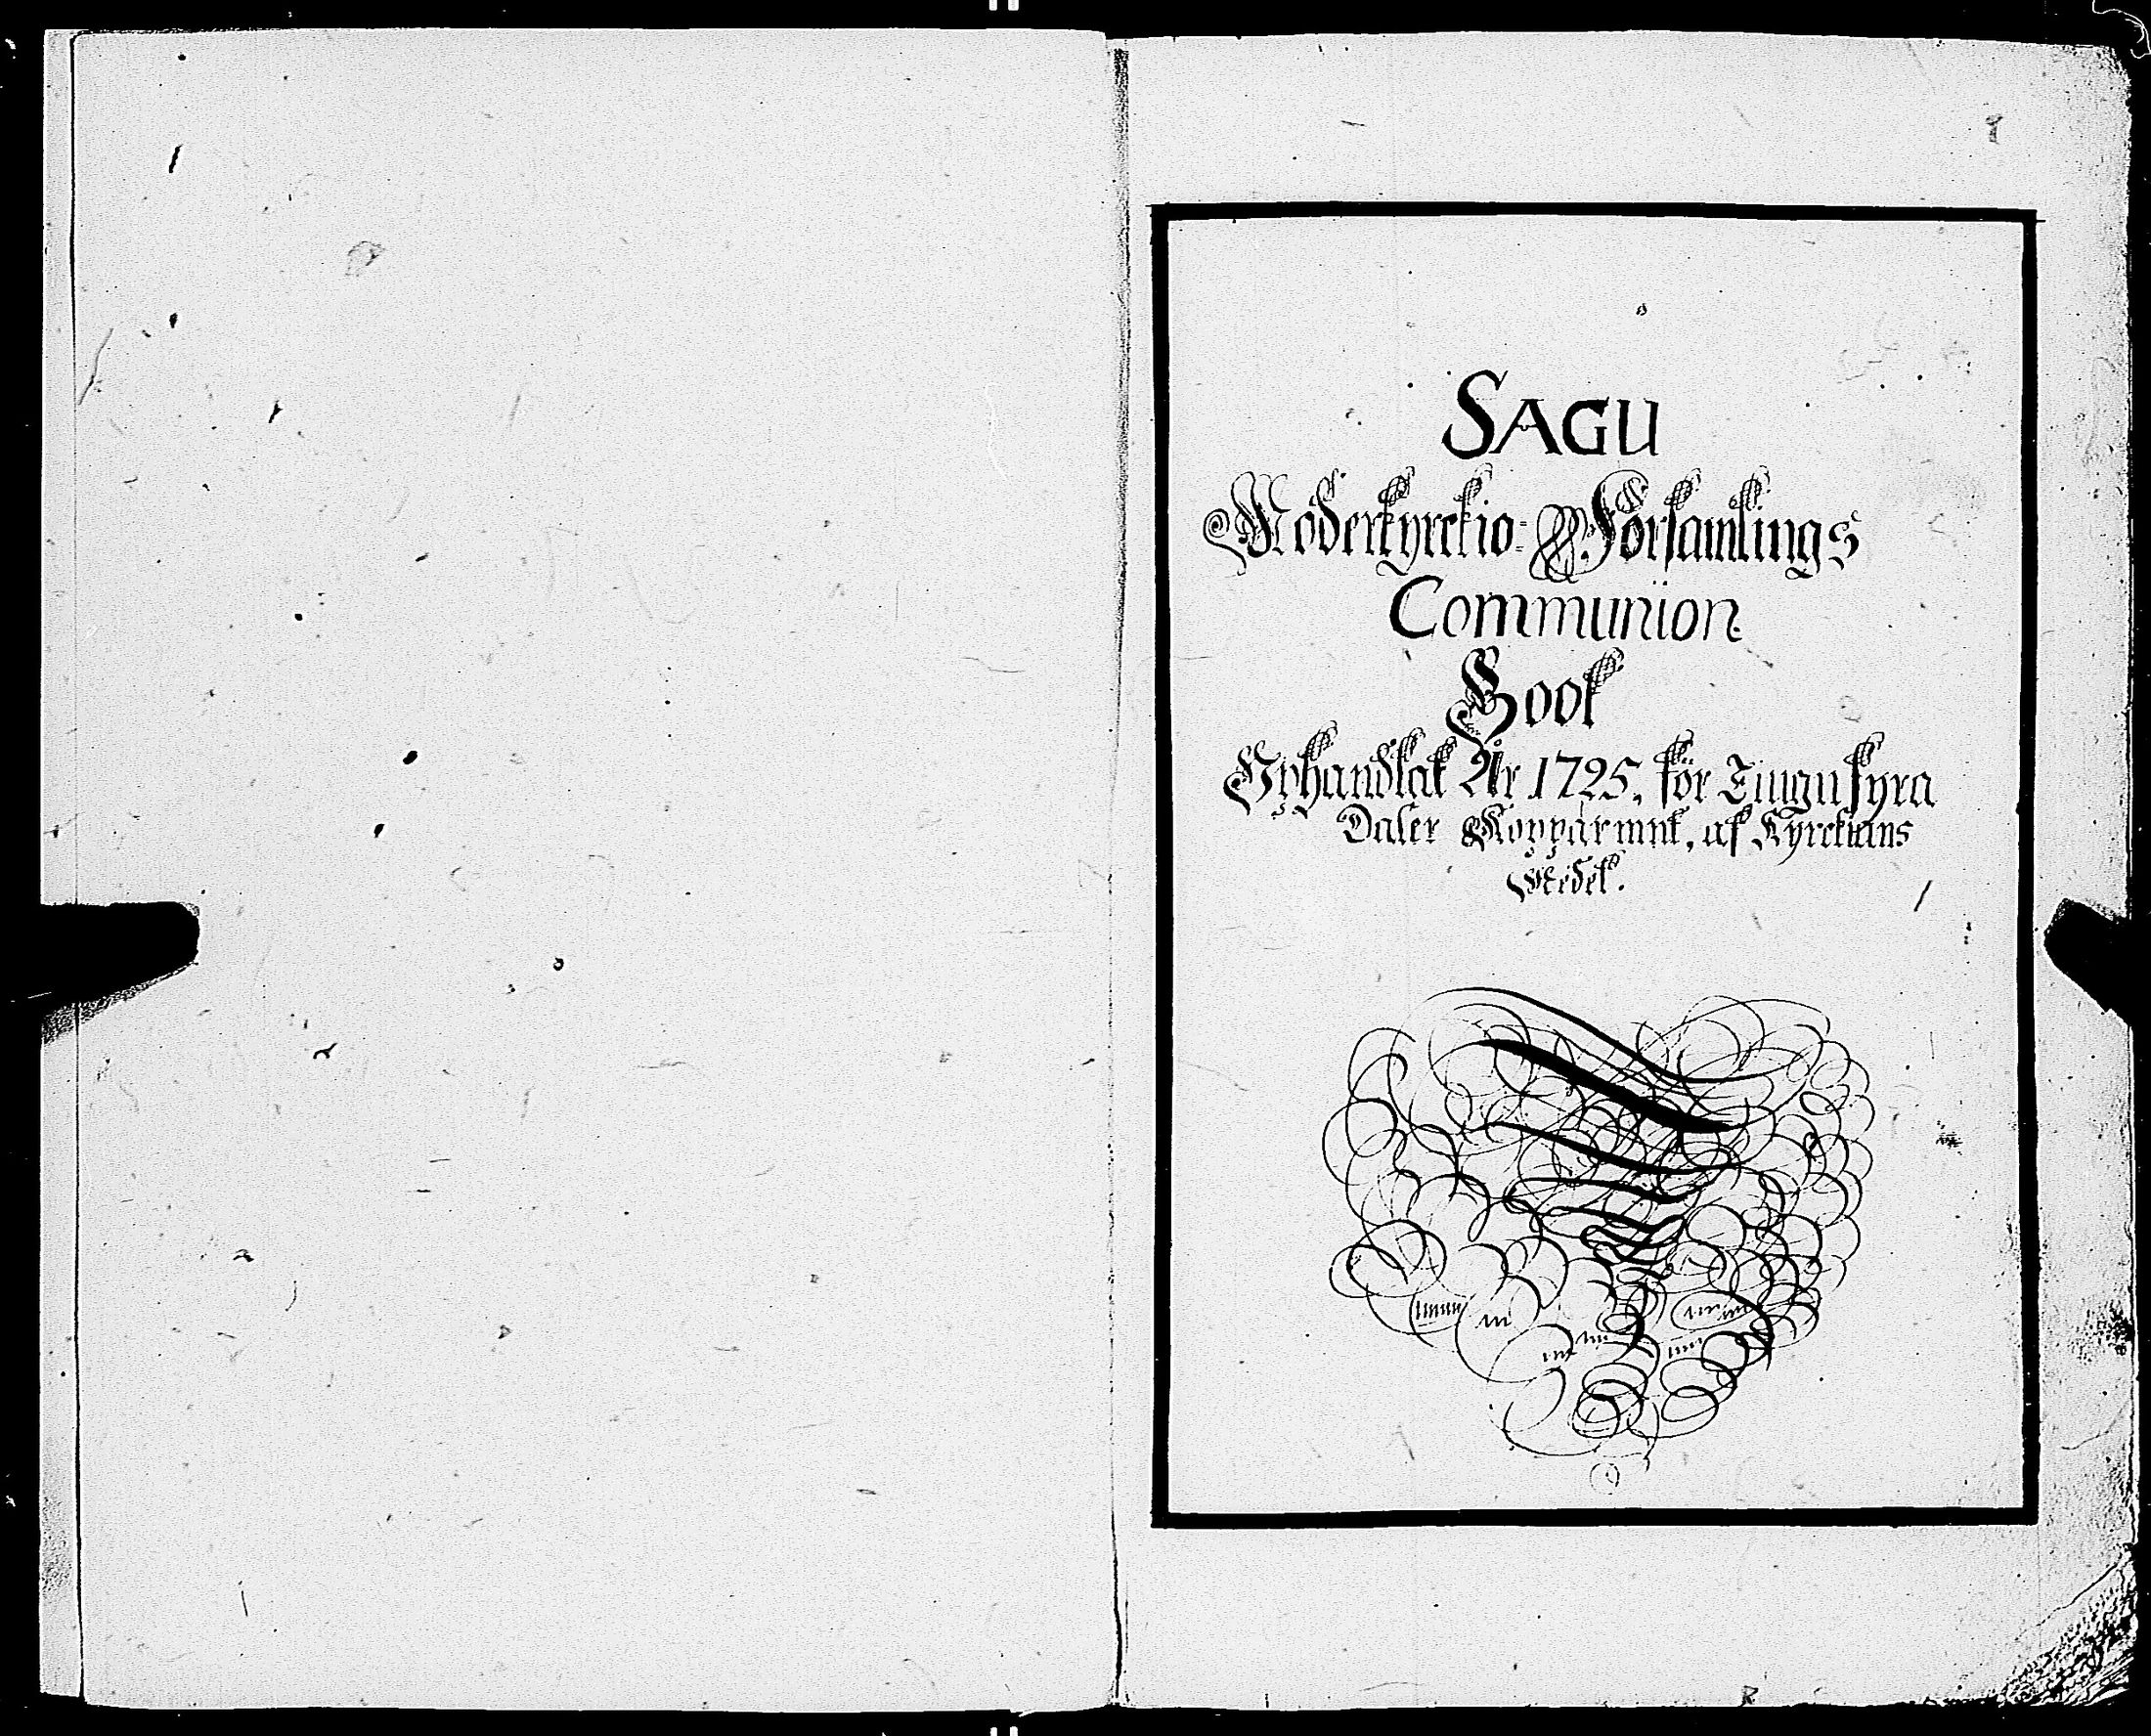 SAGU
Moderkyrckio-Församlings
Communion
Book
Uphandlat År 1725, för Tiugu fyra
Daler Kopparmnt, af Kyrckians
Medel.